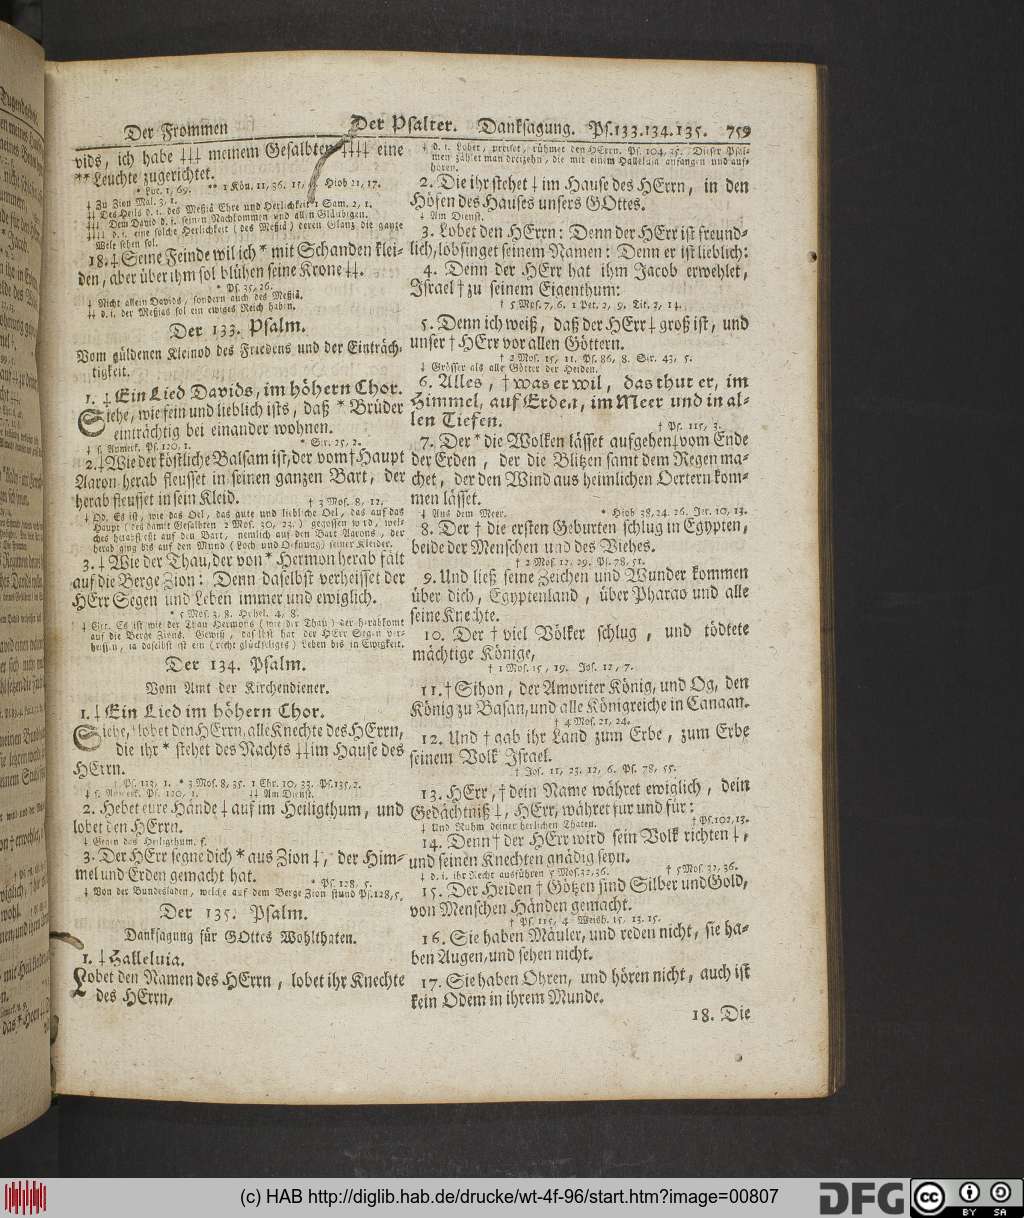 Der Frommen
Der Psalter. Danksagung. Ps. 133.134.135. 759
vids, ich habe ‡‡‡ meinem Gesalbten ‡‡‡‡ eine
** Leuchte zugerichtet.
* Luc. 1, 69. ** 1 Kön. 11, 36. Hiob 21, 17.
‡ Zu Zion Mal. 3, 1.
‡‡ Des Heils d. i. des Meßiä Ehre und Herlichkeit 1 Sam. 2, 1.
‡‡‡ Dem David d. i. seinen Nachkommen und allen Gläubigen.
‡‡‡‡ d. i. eine solche Herlichkeit (des Meßiä) deren Glanz die gantze
Welt sehen sol.
18. ‡ Seine Feinde wil ich * mit Schanden klei-
den, aber über ihm sol blühen seine Krone ‡‡.
* Ps. 35, 26.
‡ Nicht allein Davids, sondern auch des Meßiä.
‡‡ d. i. der Meßias sol ein ewiges Reich haben.
Der 133. Psalm.
Vom güldenen Kleinod des Friedens und der Einträch-
tigkeit.
1. ‡ Ein Lied Davids, im höhern Chor.
Siehe, wie fein und lieblich ists, daß * Brüder
einträchtig bei einander wohnen.
‡ s. Anmerk. Ps. 120, 1. * Sir. 25, 2.
2. ‡ Wie der köstliche Balsam ist, der vom † Haupt
Aaron herab fleusset in seinen ganzen Bart, der
herab fleusset in sein Kleid.
† 3 Mos. 8, 12.
‡ Od. Es ist, wie das Oel, das gute und liebliche Oel, das auf das
Haupt (des damit Gesalbten 2 Mos. 30, 23.) gegossen wird, wel-
ches herabfließt auf den Bart, nemlich auf den Bart Aarons, der
herab ging bis auf den Mund (Loch und Oefnung) seiner Kleider.
3. ‡ Wie der Thau, der von * Hermon herab fält
auf die Berge Zion: Denn daselbst verheisset der
HErr Segen und Leben immer und ewiglich.
* 5 Mos. 3, 8. Hohel. 4, 8.
‡ Gr. Es ist wie der Thau Hermons (wie der Thau) der herabkomt
auf die Berge Zions. Gewiß, daselbst hat der HErr Segen ver-
heissen, ja daselbst ist ein (recht glückseliges) Leben bis in Ewigkeit.
Der 134. Psalm.
Vom Amt der Kirchendiener.
1. ‡ Ein Lied im höhern Chor.
Siehe, † lobet den HErrn, alle Knechte des HErrn,
die ihr * stehet des Nachts ‡‡ im Hause des
HErrn.
† Ps. 113, 1. * 3 Mos. 8, 35. 1 Chr. 10, 33. Ps. 135, 2.
‡ s. Anmerk. Ps. 120, 1. ‡‡ Am Dienst.
2. Hebet eure Hände ‡ auf im Heiligthum, und
lobet den HErrn.
‡ Gegen das Heiligthum. s.
3. Der HErr segne dich * aus Zion ‡, der Him-
mel und Erden gemacht hat.
* Ps. 128, 5.
‡ Von der Bundesladen, welche auf dem Berge Zion stund Ps. 128, 5.
Der 135. Psalm.
Danksagung für GOttes Wohlthaten.
1. ‡ Halleluia.
Lobet den Namen des HErrn, lobet ihr Knechte
des HErrn,
‡ d. i. Lobet, preiset, rühmet den HErrn. Ps. 104, 35. Dieser Psal-
men zählet man dreizehn, die mit einem Halleluia anfangen und auf-
hören.
2. Die ihr stehet ‡ im Hause des HErrn, in den
Höfen des Hauses unsers GOttes.
‡ Am Dienst.
3. Lobet den HErrn: Denn der HErr ist freund-
lich, lobsinget seinem Namen: Denn er ist lieblich:
4. Denn der HErr hat ihm Jacob erwehlet,
Israel † zu seinem Eigenthum:
† 5 Mos. 7, 6. 1 Pet. 2, 9. Tit. 2, 14.
5. Denn ich weiß, daß der HErr ‡ groß ist, und
unser † HErr vor allen Göttern.
† 2 Mos. 15, 11. Ps. 86, 8. Sir. 43, 5.
‡ Grösser als alle Götter der Heiden.
6. Alles, † was er wil, das thut er, im
Himmel, auf Erden, im Meer und in al-
len Tiefen.
† Ps. 115, 3.
7. Der * die Wolken lässet aufgehen ‡ vom Ende
der Erden, der die Blitzen samt dem Regen ma-
chet, der den Wind aus heimlichen Oertern kom-
men lässet.
‡ Aus dem Meer. * Hiob 38, 24. 26. Jer. 10, 13.
8. Der † die ersten Geburten schlug in Egypten,
beide der Menschen und des Viehes.
† 2 Mos. 12, 29. Ps. 78, 51.
9. Und ließ seine Zeichen und Wunder kommen
über dich, Egyptenland, über Pharao und alle
seine Knechte.
10. Der † viel Völker schlug, und tödtete
mächtige Könige,
† 1 Mos. 15, 19. Jos. 12, 7.
11. † Sihon, der Amoriter König, und Og, den
König zu Basan, und alle Königreiche in Canaan.
† 4 Mos. 21, 24.
12. Und † gab ihr Land zum Erbe, zum Erbe
seinem Volk Israel.
† Jos. 11, 23. 12, 6. Ps. 78, 55.
13. HErr, † dein Name währet ewiglich, dein
Gedächtniß ‡, HErr, währet für und für:
‡ Und Ruhm deiner herlichen Thaten. † Ps. 102, 13.
14. Denn † der HErr wird sein Volk richten ‡,
und seinen Knechten gnädig seyn.
‡ d. i. ihr Recht ausführen 5 Mos. 32, 36. † 5 Mos. 32, 36.
15. Der Heiden † Götzen sind Silber und Gold,
von Menschen Händen gemacht.
† Ps. 115, 4. Weish. 15. 13. 15.
16. Sie haben Mäuler, und reden nicht, sie ha-
ben Augen, und sehen nicht.
17. Sie haben Ohren, und hören nicht, auch ist
kein Odem in ihrem Munde.
18. Die
(c) HAB http://diglib.hab.de/drucke/wt-4f-96/start.htm?image=00807
DFG
cc BY SA